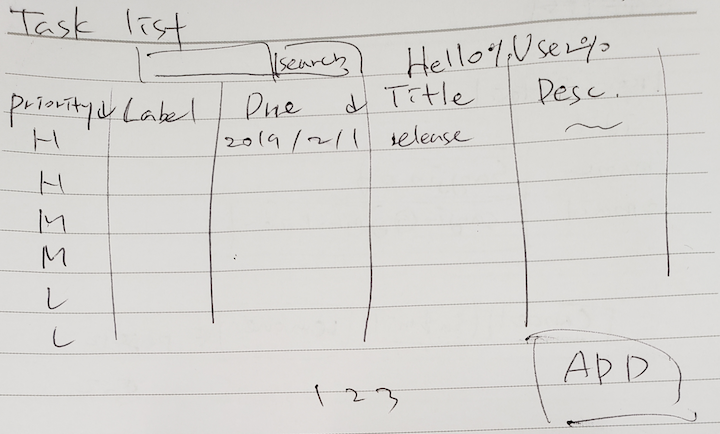 Task list
search Hello %User%
Priority ↓ Label Due ↓ Title Desc.
H 2019/2/1 release ~
H
M
M
L
L
ADD
1 2 3